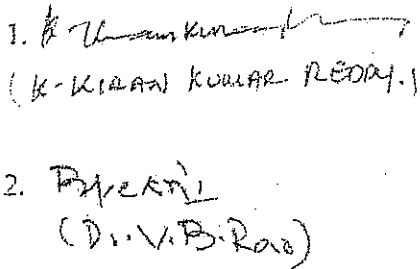 1. K
(K-KIRAN KUMAR REDDY.)
2.
(Dr. V.B. Rao)